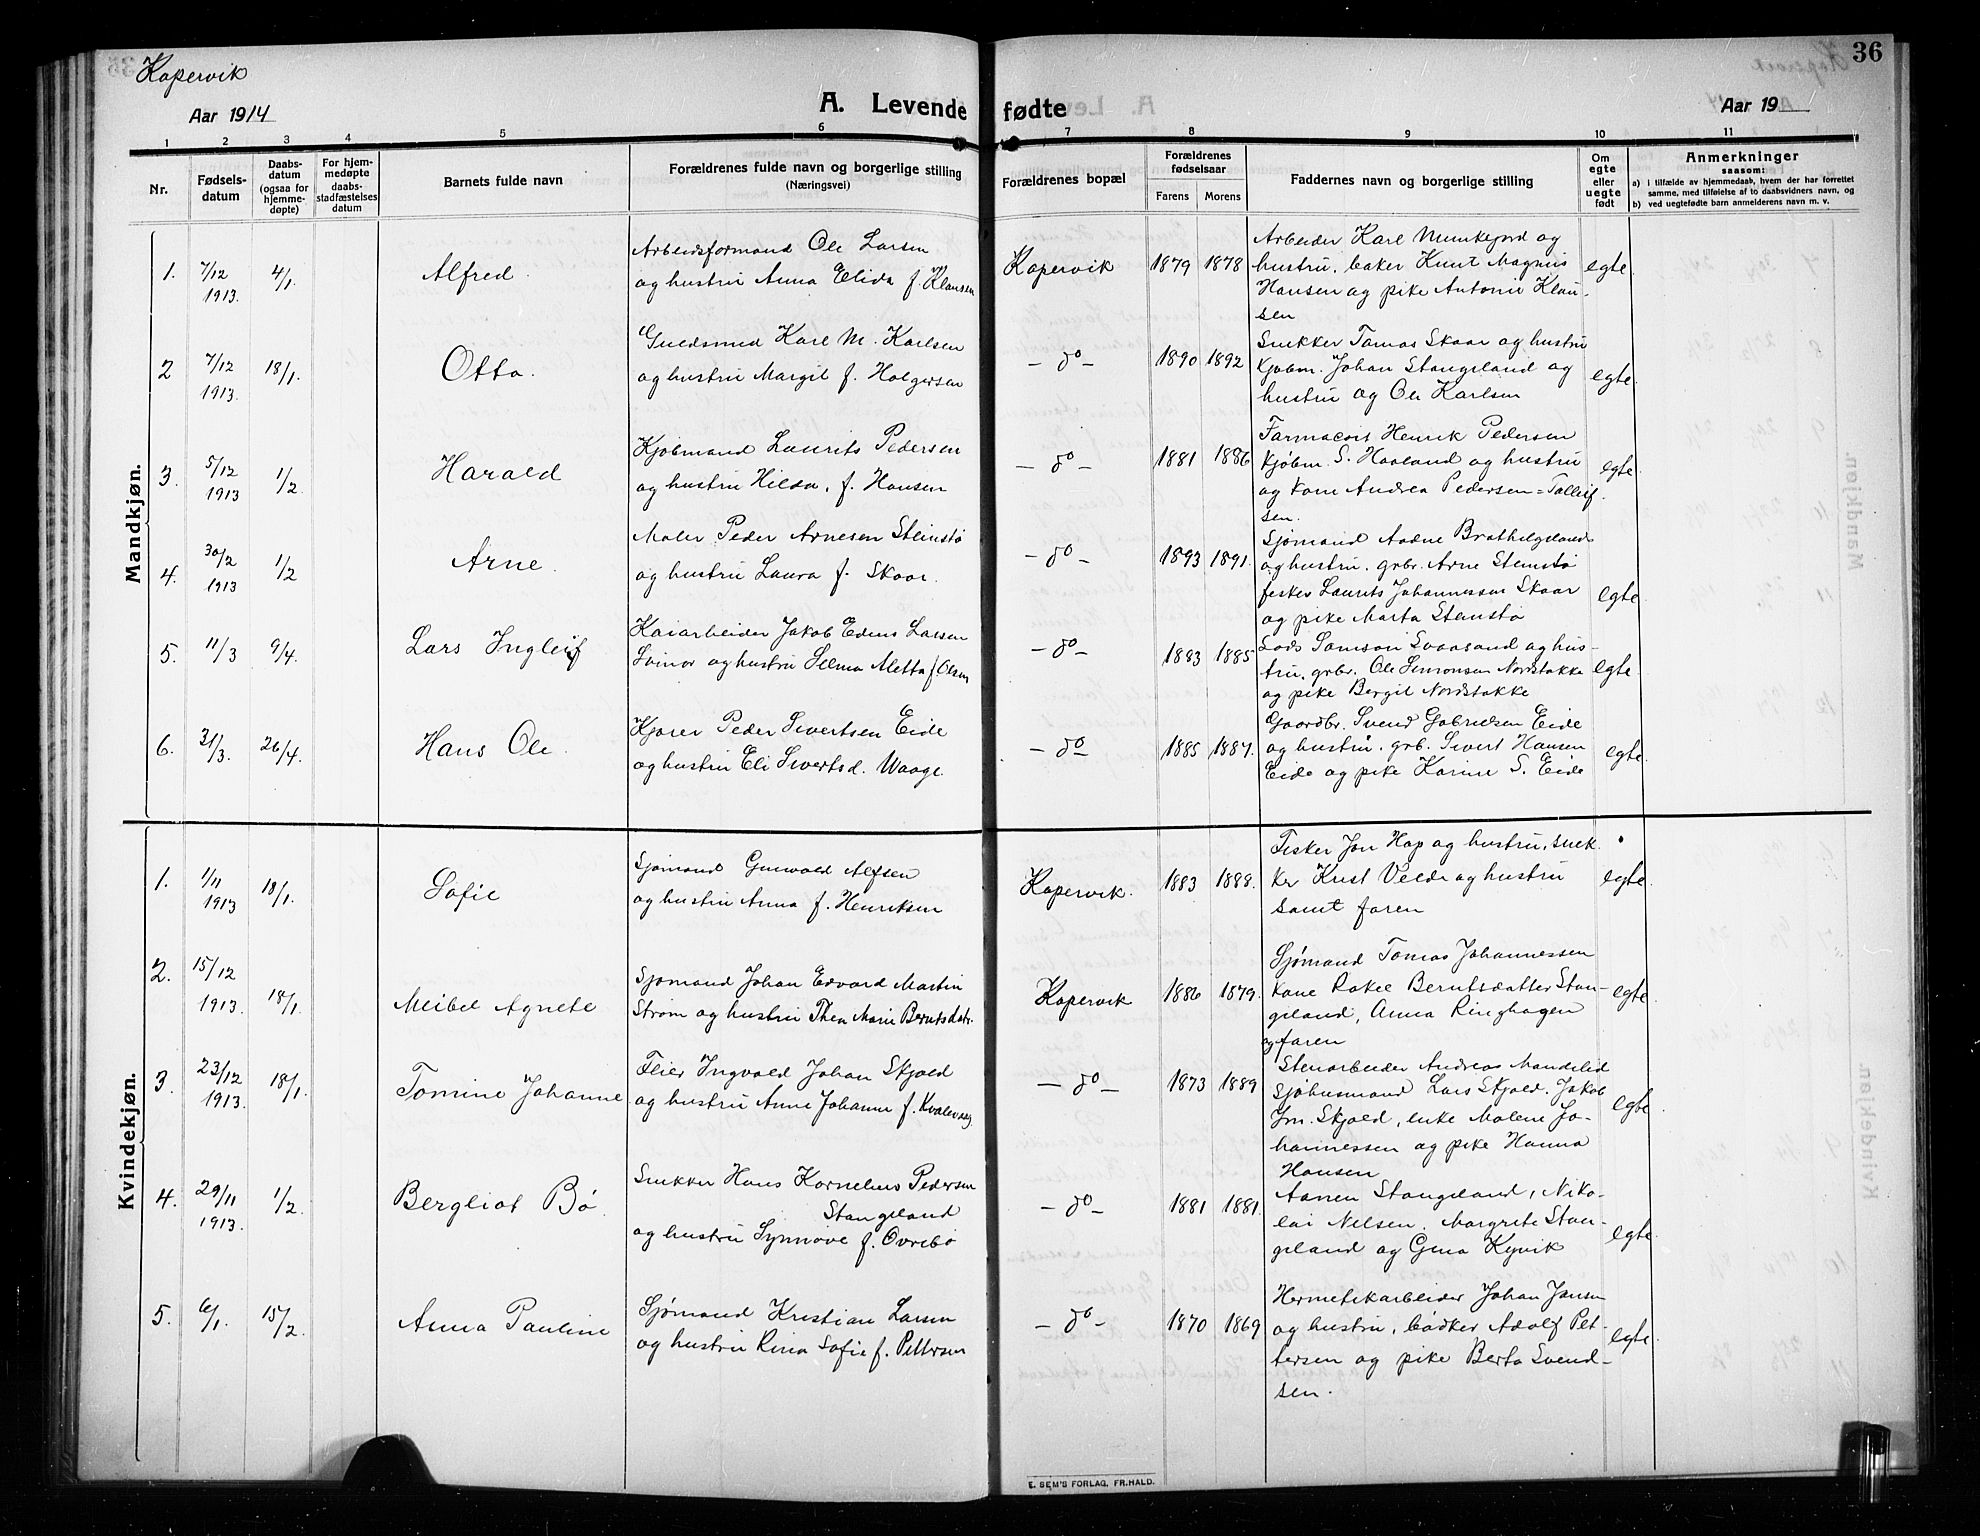 Kopervik
36
Aar 1914
A. Levende fødte
Aar 19
1 2 3 4 5 6 7 8 9 10 11
Nr.
Fødsels-
datum
Daabs-
datum
(ogsaa for
hjemme-
døpte)
For hjem-
medøpte
daabs-
stadfæstelses
datum
Barnets fulde navn
Forældrenes fulde navn og borgerlige stilling
(Næringsvei)
Forældrenes bopæl
Forældrenes
fødselsaar
Farens Morens
Faddernes navn og borgerlige stilling
Om
egte
eller
uegte
født
Anmerkninger
saasom:
a) i tilfælde av hjemmedaab, hvem der har forrettet
samme, med tilføielse af to daabsvidners navn, og
b) ved uegtefødte barn anmelderens navn m. v.
Mandkjøn.
1. 7/12 1913. 4/1 Alfred.
Arbeidsformand Ole Larsen
og hustru Anna Elida f. Klausen
Kopervik 1879 1878
Arbeider Karl Munkejord og
hustru, baker Knut Magnus
Hansen og pike Antonie Klau-
sen
egte.
2 7/12 1913. 18/1 Otto.
Guldsmed Karl M. Karlsen
og hustru Margit f. Holgersen
- do - 1890 1892
Snekker Tomas Skaar og hustru
Kjøbm. Johan Stangeland og
hustru og Ole Karlsen
egte.
3. 5/12 1913 1/2 Harald
Kjøbmand Laurits Pedersen
og hustru Hilda, f. Hansen
- do - 1881 1886
Farmacevt Henrik Pedersen
Kjøbm. S. Haaland og hustru
og kone Andrea Pedersen = Tollef-
sen.
egte
4. 30/2 1913 1/2 Arne.
Maler Peder Arnesen Stenstø
og hustru Laura f. Skaar.
- do - 1893 1891.
Sjømand Aadne Brathelgeland
og hustru. grbr. Arne Stenstø
fisker Laurits Johannessen Skaar
og pike Marta Stenstø
egte.
5. 11/3 9/4. Lars Ingleif
Kaiarbeider Jakob Edens Larsen
Svinor og hustru Selma Metta f. Olsen
- do - 1883 1885
Lods Samson Svaasand og hus-
tru. grbr. Ole Simonsen Nordstokke
og pike Bergit Nordstokke
egte.
6. 31/3. 26/4. Hans Ole.
Kjører Peder Sivertsen Eide
og hustru Eli Sivertsd. Waage.
- do - 1885 1887.
Gaardbr. Svend Gabrielsen Eide
og hustru. grb. Sivert Hansen
Eide og pike Karine S. Eide
egte.
Kvindekjøn.
1. 1/11 1913 18/1. Sofie
Sjømand Gunvald Alfsen
og hustru Anna f. Henriksen
Kopervik. 1883 1888.
Fisker Jon Hop og hustru, snek-
ker Krist Velde og hustru
samt faren
egte.
2. 15/12 1913. 18/1. Meibel Agnete
Sjømand Johan Edvard Martin
Strøm og hustru Thea Marie Berntsdatr.
Kopervik 1886 1879.
Sjømand Tomas Johannessen
Kone Rakel Berntsdatter Stan-
geland, Anna Ringhagen
og faren
egte.
3. 23/12 1913. 18/1. Tomine Johanne
Feier Ingvald Johan Skjold
og hustru Anne Johanne f. Kvalevaag
- do - 1873 1889
Stenarbeider Andreas Mandelid
Sjøhusmand Lars Skjold. Jakob
Jm. Skjold, enke Malene Jo-
hannessen og pike Hanna
Hansen
egte.
4. 29/11 1913. 1/2. Bergliot Bø.
Snekker Hans Kornelius Pedersen
Stangeland
og hustru Synnøve f. Øvrebø
- do - 1881 1881.
Aanen Stangeland, Niko-
lai Nilsen. Margrete Stan-
geland og Gina Kyvik
egte.
5. 6/1. 15/2. Anna Pauline
Sjømand Kristian Larsen
og hustru Rina Sofie f. Pettersen
- do - 1870 1869
Hermetikarbeider Johan Jansen
og hustru, bødker Adolf Pet-
tersen og pike Berta Svend-
sen.
egte.
E. SEM'S FORLAG, FR.HALD.